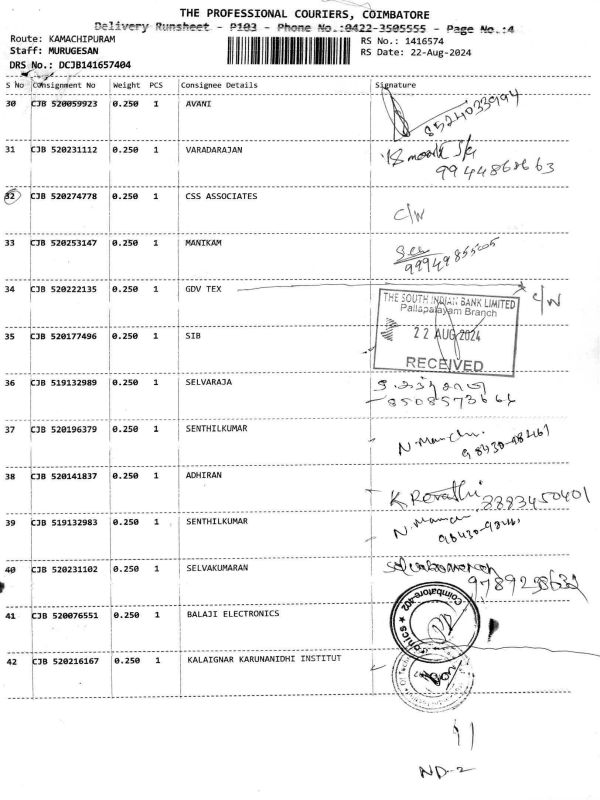 THE PROFESSIONAL COURIERS, COIMBATORE
Delivery Runsheet - P103 - Phone No.:0422-3505555 - Page No.:4
Route: KAMACHIPURAM
RS No.: 1416574
Staff: MURUGESAN
RS Date: 22-Aug-2024
DRS No.: DCJB141657404
S No Consignment No Weight PCS Consignee Details Signature
30 CJB 520059923 0.250 1 AVANI
31 CJB 520231112 0.250 1 VARADARAJAN
32 CJB 520274778 0.250 1 CSS ASSOCIATES C/W
33 CJB 520253147 0.250 1 MANIKAM
34 CJB 520222135 0.250 1 GDV TEX C/W
THE SOUTH INDIAN BANK LIMITED
Pallapalayam Branch
22 AUG 2024
RECEIVED
35 CJB 520177496 0.250 1 SIB
36 CJB 519132989 0.250 1 SELVARAJA
37 CJB 520196379 0.250 1 SENTHILKUMAR
38 CJB 520141837 0.250 1 ADHIRAN K Revathi 8883450401
39 CJB 519132983 0.250 1 SENTHILKUMAR
40 CJB 520231102 0.250 1 SELVAKUMARAN
41 CJB 520076551 0.250 1 BALAJI ELECTRONICS
Coimbatore-402
42 CJB 520216167 0.250 1 KALAIGNAR KARUNANIDHI INSTITUT
ND-2